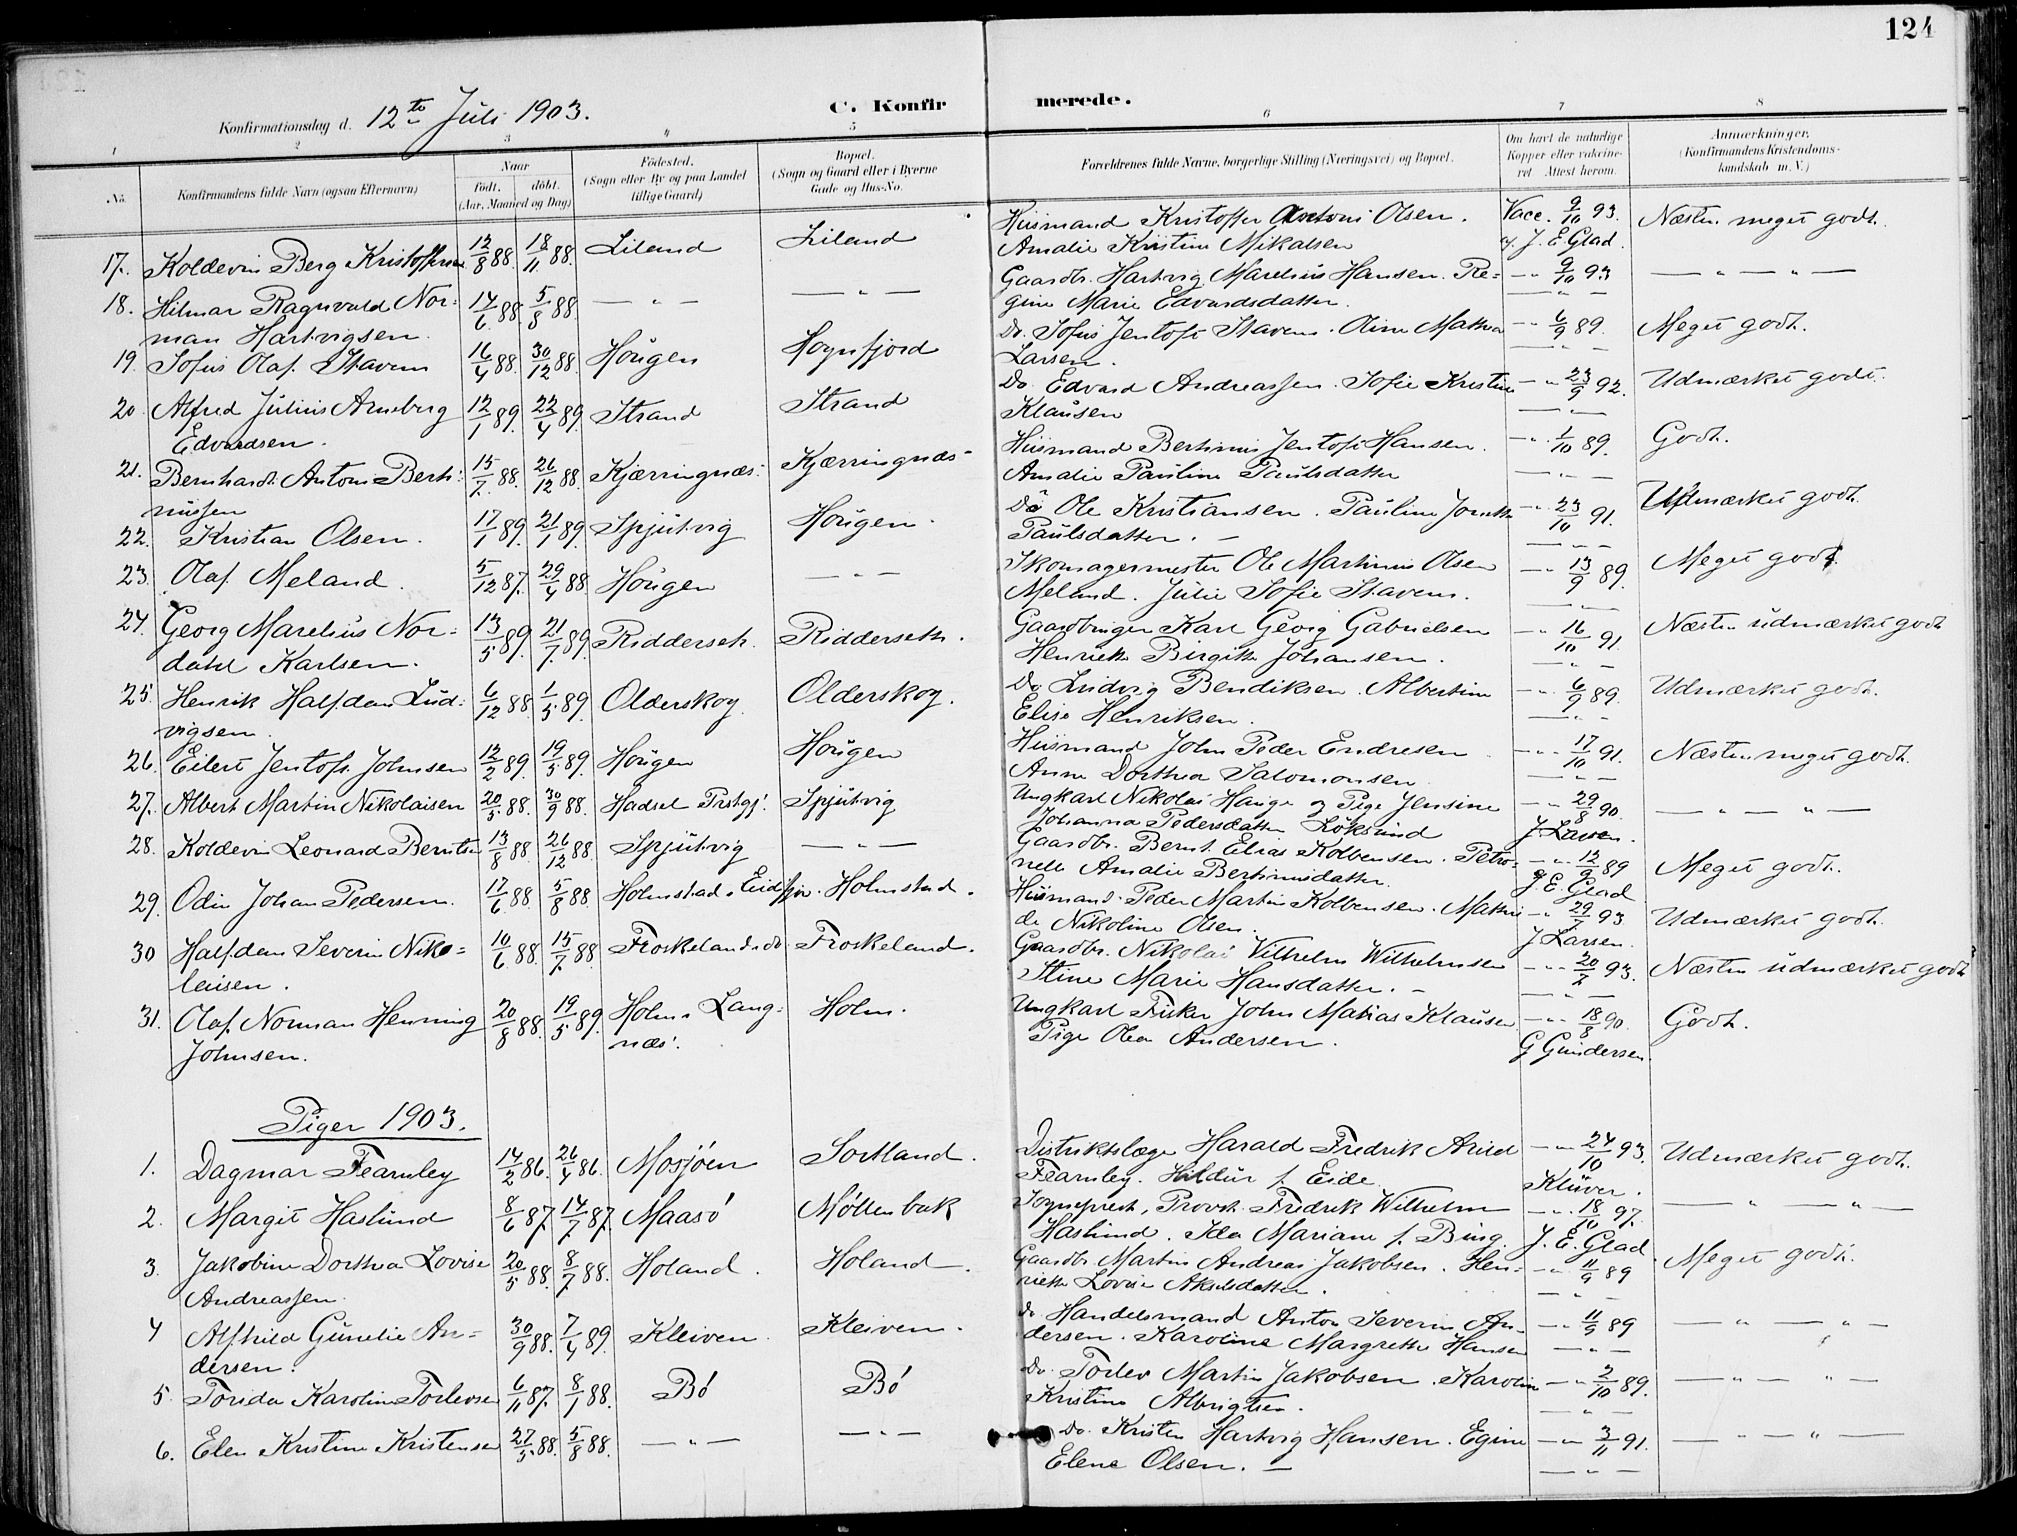 124
Konfirmationsdag d. 12te Juli 1903.
C. Konfirmerede.
1 2 3 4 5 6 7 8
No. Konfirmandens fulde Navn (ogsaa Efternavn) Naar født. døbt. (Aar, Maaned og Dag) Fødested. (Sogn eller By og paa Landet tillige Gaard) Bopæl. (Sogn og Gaard eller i Byerne Gade og Hus-No. Forældrenes fulde Navne, borgerlige Stilling (Næringsvei) og Bopæl. Om havt de naturlige Kopper eller vakcineret. Attest herom. Anmærkninger. (Konfirmandens Kristendomskundskab m. V.)
17. Koldevin Berg Kristoffersen 12/8 88. 18/11 88. Liland Liland Husmand Kristoffer Antoni Olsen. Vacc. 9/10 93. Næsten meget godt.
Amalie Kristine Mikalsen J. E. Glad.
18. Hilmar Ragnvald Nor= 14/6 88. 5/8 88. — " — — " — Gaardbr. Hartvig Marelius Hansen. Re= — " 9/10 93 — " — " —
man Hartvigsen. gine Marie Edvardsdatter. — " —
19. Sofus Olaf Stavem 16/4 88. 30/12 88. Hougen Hognfjord Do. Sofus Jentoft Stavem. Oline Mathea — " 6/9 89. Meget godt.
Larsen. — " —
20. Alfred Julius Arneberg 12/1 89. 22/4 89. Strand Strand Do. Edvard Andreassen. Sofie Kristine — " 23/9 92. Udmærket godt.
Edvardsen. Klausen — " —
21. Bernhardt Antoni Berti= 15/7 88. 26/12 88. Kjærringnæs Kjærringnæs Husmand Bertinius Jentoft Hansen. — " 1/10 89. Godt.
niussen Amalie Pauline Paulsdatter — " —
22. Kristian Olsen. 17/1 89. 21/1 89. Spjutvig Hougen. Do Ole Kristiansen. Pauline Jonette — " 23/10 91. Udmærket godt.
Paulsdatter. — — " —
23. Olaf Meland. 5/12 87. 29/4 88. Hougen — " — Skomagermester Ole Martinus Olsen — " 13/9 89. Meget godt.
Meland. Julie Sofie Stavem. — " —
24. Georg Marelius Nor= 13/5 89. 21/7 89. Ridderseth. Ridderseth. Gaardbruger Karl Georg Gabrielsen — " 16/10 91. Næsten udmærket godt
dahl Karlsen. Henriette Birgitte Johansen. — " —
25. Henrik Halfdan Lud= 6/12 88. 1/5 89. Olderskog. Olderskog. Do Ludvig Bendiksen. Albertine — " 6/9 89. Udmærket godt.
vigsen. Elise Henriksen. — " —
26. Eilert Jentoft Johnsen 12/2 89. 19/5 89. Hougen Hougen Husmand John Peder Endresen — " 17/10 91. Næsten meget godt.
Anne Dorthea Salomonsen — " —
27. Albert Martin Nikolaisen 20/5 88. 30/9 88. Hadsel Prstgj. Spjutvig Ungkarl Nikolai Hauge og Pige Jensine — " 29/8 90. — " — " —
Johanna Pedersdatter Loksund J. Larsen.
28. Koldevin Leonard Berntsen 13/8 88. 26/12 88. Spjutvig — " — Gaardbr. Bernt Elias Kolbensen. Petro= — " 12/9 89 Meget godt.
nelle Amalie Bertinusdatter. J. E. Glad
29. Odin Johan Pedersen. 17/6 88. 5/8 88 Holmstad. Eidsfjor. Holmstad. Husmand. Peder Martin Kolbensen. Mathil — " 29/7 93 Udmærket godt.
de Nikoline Olsen. J. Larsen.
30 Halfdan Severin Niko= 10/6 88. 15/7 88. Froskeland. do Froskeland. Gaardbr. Nikolai Vilhelm Wilhelmsen — " 20/2 93. Næsten udmærket godt
laisen. Stine Marie Hansdatter. — — " —
31. Olaf Norman Henning 20/8 88. 19/5 89. Holm. Lang= Holm. Ungkarl Fisker John Matias Klausen — " 18/8 90. Godt.
Johnsen. næs. Pige Olea Andersen. G Gundersen.
Piger 1903.
1. Dagmar Fearnley 14/2 86. 26/4 86. Mosjøen Sortland. Distriktslæge Harald Fredrik Arild — " 24/10 93. Udmærket godt.
Fearnley. Hildur f. Eide. Klüver.
2. Margit Haslund 8/6 87. 14/7 87. Maasø Møllenbak Sogneprest, Provst Fredrik Wilhelm — " 18/10 97. — " — " —
Haslund. Ida Mariane f. Bing. J. E. Glad
3. Jakobine Dorthea Lovise 20/5 88. 8/7 88. Holand. Holand. Gaardbr. Martin Andreas Jakobsen. Hen= — " 11/9 89 Meget godt.
Andreassen. riette Lovise Akselsdatter. — " —
4 Alfhild Gunelie An= 30/9 88. 7/4 89. Kleiven. Kleiven. do Handelsmand Anton Severin An= — " 11/9 89 — " — " —
dersen. dersen. Karoline Margrethe Hansen — " —
5. Torida Karoline Torlevsen 6/11 87. 8/1 88. Bø Bø Do. Torlev Martin Jakobsen. Karoline — " 2/10 89. — " — " —
Kristine Albrigtsen. — " —
6. Elen Kristine Kristensen 27/5 88. 5/8 88. — " — — " — Do. Kristen Hartvig Hansen. Egine — " 3/11 91. — " — " —
Elene Olsen. — — " —